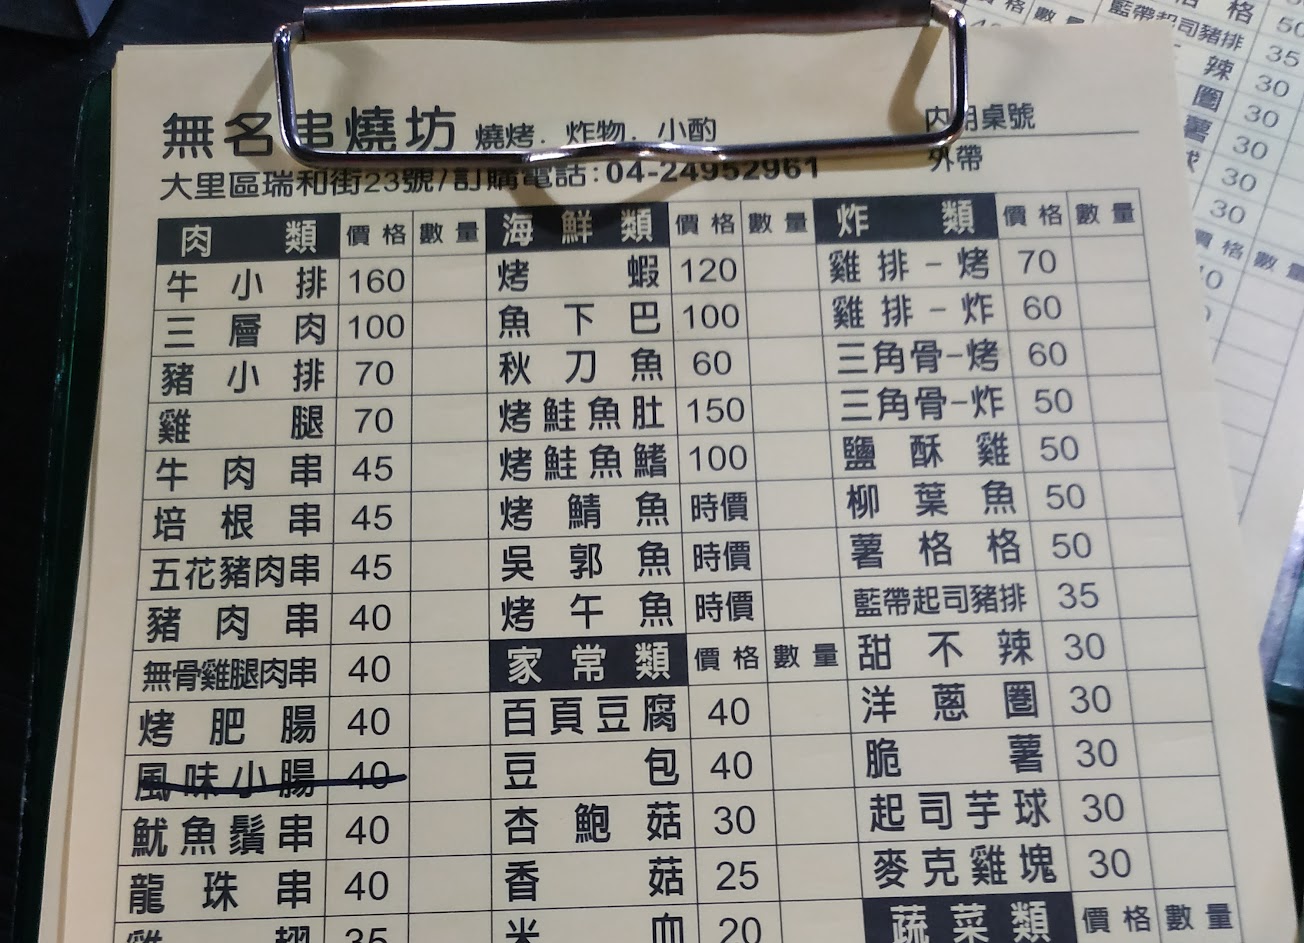 無名串燒坊 燒烤．炸物．小酌
內用桌號
大里區瑞和街23號/訂購電話:04-24952961
外帶
肉類 價格 數量 海鮮類 價格 數量 炸類 價格 數量
牛小排 160 烤蝦 120 雞排-烤 70
三層肉 100 魚下巴 100 雞排-炸 60
豬小排 70 秋刀魚 60 三角骨-烤 60
雞腿 70 烤鮭魚肚 150 三角骨-炸 50
牛肉串 45 烤鮭魚鰭 100 鹽酥雞 50
培根串 45 烤鯖魚 時價 柳葉魚 50
五花豬肉串 45 吳郭魚 時價 薯格格 50
豬肉串 40 烤午魚 時價 藍帶起司豬排 35
無骨雞腿肉串 40 家常類 價格 數量 甜不辣 30
烤肥腸 40 百頁豆腐 40 洋蔥圈 30
風味小腸 40 豆包 40 脆薯 30
魷魚鬚串 40 杏鮑菇 30 起司芋球 30
龍珠串 40 香菇 25 麥克雞塊 30
雞翅 35 米血 20 蔬菜類 價格 數量
價格 數量 藍帶起司豬排 35
辣 30
圈 30
薯 30
球 30
30
價格 數量